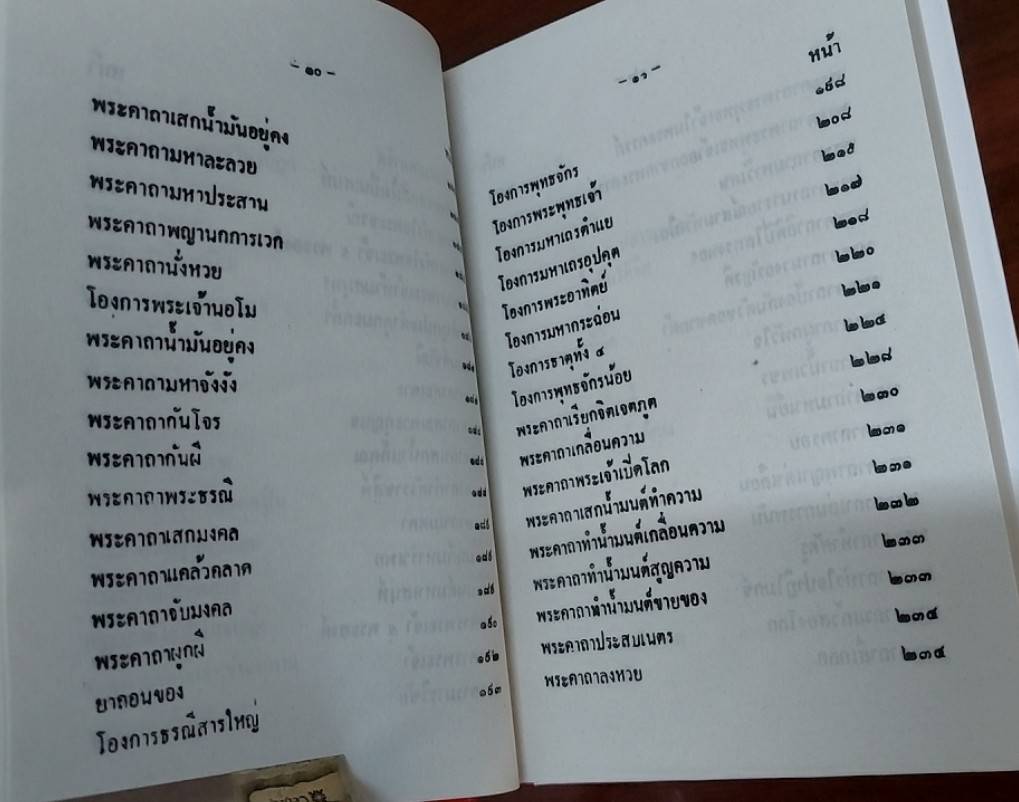 - ๑๐ -
พระคาถาเสกน้ำมันอยู่คง
พระคาถามหาละลวย
พระคาถามหาประสาน
พระคาถาพญานกการเวก
พระคาถานั่งหวย
โองการพระเจ้านอโม
พระคาถาน้ำมันอยู่คง
พระคาถามหาจังงัง
พระคาถากันโจร
พระคาถากันผี
พระคาถาพระธรณี
พระคาถาเสกมงคล
พระคาถาแคล้วคลาด
พระคาถาจับมงคล ๑๙๐
พระคาถาผูกผี ๑๙๒
ยาถอนของ ๑๙๓
โองการธรณีสารใหญ่
- ๑๑ -
หน้า
โองการพุทธจักร ๑๙๘
โองการพระพุทธเจ้า ๒๐๘
โองการมหาเถรตำแย ๒๑๕
โองการมหาเถรอุปคุต ๒๑๗
โองการพระอาทิตย์ ๒๑๘
โองการมหากระฉ่อน ๒๒๐
โองการธาตุทั้ง ๔ ๒๒๑
โองการพุทธจักรน้อย ๒๒๔
พระคาถาเรียกจิตเจตภูต ๒๒๘
พระคาถาเกลื่อนความ ๒๓๐
พระคาถาพระเจ้าเปิดโลก ๒๓๑
พระคาถาเสกน้ำมนต์ทำความ ๒๓๑
พระคาถาทำน้ำมนต์เกลื่อนความ ๒๓๒
พระคาถาทำน้ำมนต์สูญความ ๒๓๓
พระคาถาทำน้ำมนต์ขายของ ๒๓๓
พระคาถาประสบเนตร ๒๓๔
พระคาถาลงหวย ๒๓๔